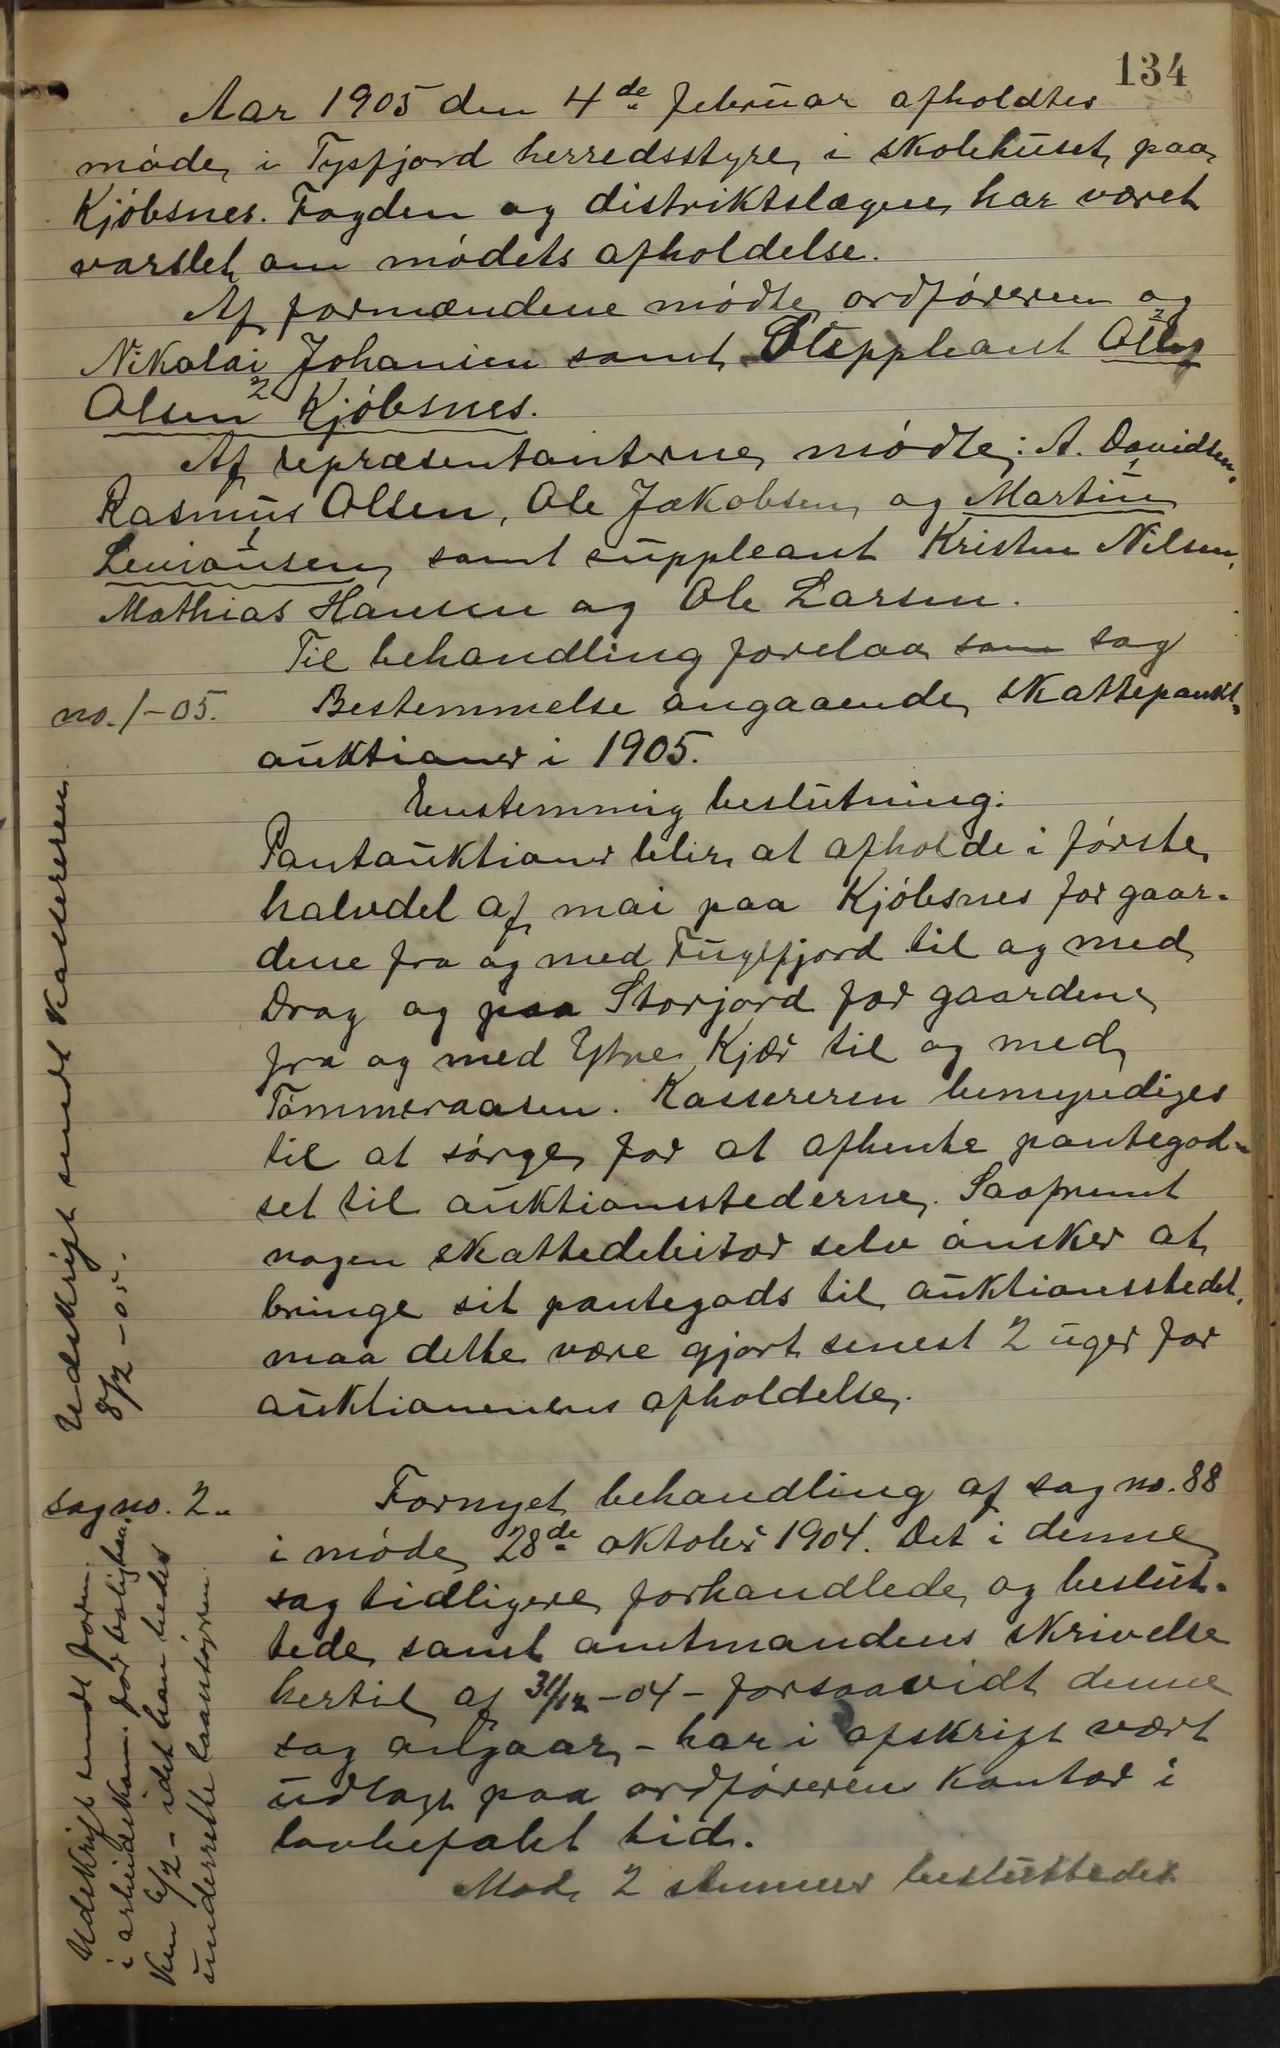 134
Aar 1905 den 4de februar afholdtes
møde i Tysfjord herredsstyre i skolehuset paa
Kjøbsnes. Fogden og distriktslægen har været
varslet om mødets afholdelse.
Af formændene mødte ordføreren og
Nikolai Johansen samt Suppleant Olley
Olsen 2 Kjøbsnes.
Af repræsentanterne mødte: A. Davidsen,
Rasmus Olsen, Ole Jakobsen og Martin
Leviousen samt suppleant Kristen Nilsen,
Mathias Hansen og Ole Larsen.
Til behandling forelaa som sag
no. 1-05. Bestemmelse angaaende skattepant-
auktioner i 1905.
Enstemmig beslutning:
Pantauktioner blir at afholde i første
halvdel af mai paa Kjøbsnes for gaar-
dene fra og med Fuglfjord til og med
Drag og paa Storjord for gaardene
fra og med Ytre Kjær til og med
Tømmeraasen. Kassereren bemyndiges
til at sørge for at afhente pantegod-
set til auktionsstederne. Saafremt
nogen skattedebitor selv ønsker at
bringe sit pantegods til auktionsstedet,
maa dette være gjort senest 2 uger før
auktionenens afholdelse.
Udskrift sendt kassereren
8/2-05.
sag no. 2. Fornyet behandling af sag no. 88
i møde 28de oktober 1904. Det i denne
sag tidligere forhandlede og beslut-
tede samt amtmandens skrivelse
hertil af 31/12-04 - forsaavidt denne
sag angaar - har i afskrift vært
udlagt paa ordføreren kontor i
lovbefalt tid.
Mod 2 stemmer besluttedes
Udskrift sendt form.
i arbeidskom. for boligban-
ken 6/2 - idet han bedes
underrette laansøgeren.